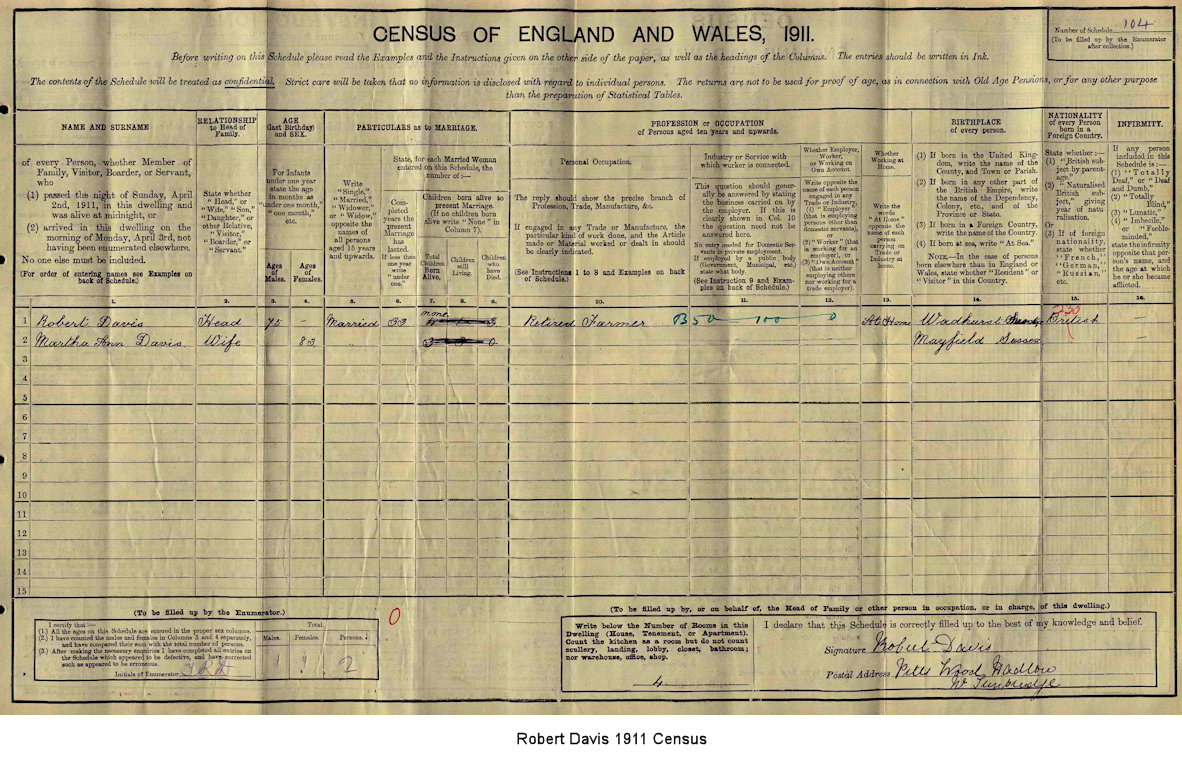 CENSUS OF ENGLAND AND WALES, 1911.
Number of Schedule 104
(To be filled up by the Enumerator
after collection.)
Before writing on this Schedule please read the Examples and the Instructions given on the other side of the paper, as well as the headings of the Columns. The entries should be written in Ink.
The contents of the Schedule will be treated as confidential. Strict care will be taken that no information is disclosed with regard to individual persons. The returns are not to be used for proof of age, as in connection with Old Age Pensions, or for any other purpose
than the preparation of Statistical Tables.
NAME AND SURNAME
of every Person, whether Member of
Family, Visitor, Boarder, or Servant,
who
(1) passed the night of Sunday, April
2nd, 1911, in this dwelling and
was alive at midnight, or
(2) arrived in this dwelling on the
morning of Monday, April 3rd, not
having been enumerated elsewhere.
No one else must be included.
(For order of entering names see Examples on
back of Schedule.)
1.
RELATIONSHIP
to Head of
Family.
State whether
"Head," or
"Wife," "Son,"
"Daughter," or
other Relative,
"Visitor,"
"Boarder," or
"Servant."
2.
AGE
(last Birthday)
and SEX.
For Infants
under one year
state the age
in months as
"under one month,"
"one month,"
etc.
Ages
of
Males.
3.
Ages
of
Females.
4.
PARTICULARS as to MARRIAGE.
Write
"Single,"
"Married,"
"Widower,"
or "Widow,"
opposite the
names of
all persons
aged 15 years
and upwards.
5.
State, for each Married Woman
entered on this Schedule, the
number of :—
Completed
years the
present
Marriage
has
lasted.
If less than
one year
write
"under
one."
6.
Children born alive to
present Marriage.
(If no children born
alive write "None" in
Column 7).
Total
Children
Born
Alive.
7.
Children
still
Living.
8.
Children
who
have
Died.
9.
PROFESSION or OCCUPATION
of Persons aged ten years and upwards.
Personal Occupation.
The reply should show the precise branch of
Profession, Trade, Manufacture, &c.
If engaged in any Trade or Manufacture, the
particular kind of work done, and the Article
made or Material worked or dealt in should
be clearly indicated.
(See Instructions 1 to 8 and Examples on back
of Schedule.)
10.
Industry or Service with
which worker is connected.
This question should generally
be answered by stating
the business carried on by
the employer. If this is
clearly shown in Col. 10
the question need not be
answered here.
No entry needed for Domestic Servants
in private employment.
If employed by a public body
(Government, Municipal, etc.)
state what body.
(See Instruction 9 and Examples
on back of Schedule.)
11.
Whether Employer,
Worker,
or Working on
Own Account.
Write opposite the
name of each person
engaged in any
Trade or Industry,
(1) "Employer"
(that is employing
persons other than
domestic servants),
or
(2) "Worker" (that
is working for an
employer), or
(3) "Own Account"
(that is neither
employing others
nor working for a
trade employer).
12.
Whether
Working at
Home.
Write the
words
"At Home"
opposite the
name of each
person
carrying on
Trade or
Industry at
home.
13.
BIRTHPLACE
of every person.
(1) If born in the United Kingdom,
write the name of the
County, and Town or Parish.
(2) If born in any other part of
the British Empire, write
the name of the Dependency,
Colony, etc., and of the
Province or State.
(3) If born in a Foreign Country,
write the name of the Country.
(4) If born at sea, write "At Sea."
NOTE.—In the case of persons
born elsewhere than in England or
Wales, state whether "Resident" or
"Visitor" in this Country.
14.
NATIONALITY
of every Person
born in a
Foreign Country.
State whether :—
(1) "British subject
by parentage,"
(2) "Naturalised
British subject,"
giving
year of naturalisation.
Or
(3) If of foreign
nationality,
state whether
"French,"
"German,"
"Russian,"
etc.
15.
INFIRMITY.
If any person
included in this
Schedule is :—
(1) "Totally
Deaf," or "Deaf
and Dumb,"
(2) "Totally
Blind,"
(3) "Lunatic,"
(4) "Imbecile,"
or "Feeble-minded,"
state the infirmity
opposite that person's
name, and
the age at which
he or she became
afflicted.
16.
1 Robert Davis Head 75 – Married 33 none 3 Retired Farmer 350 – 100 – 0 At Home Wadhurst Sussex British
2 Martha Ann Davis Wife 83 3 3 0 Mayfield Sussex –
3
4
5
6
7
8
9
10
11
12
13
14
15
(To be filled up by the Enumerator.)
I certify that :—
(1.) All the ages on this Schedule are entered in the proper sex columns.
(2.) I have counted the males and females in Columns 3 and 4 separately,
and have compared their sum with the total number of persons.
(3.) After making the necessary enquiries I have completed all entries on
the Schedule which appeared to be defective, and have corrected
such as appeared to be erroneous.
Initials of Enumerator
Total.
Males. Females. Persons.
1 1 2
0
(To be filled up by, or on behalf of, the Head of Family or other person in occupation, or in charge, of this dwelling.)
Write below the Number of Rooms in this
Dwelling (House, Tenement, or Apartment).
Count the kitchen as a room but do not count
scullery, landing, lobby, closet, bathroom;
nor warehouse, office, shop.
4
I declare that this Schedule is correctly filled up to the best of my knowledge and belief.
Signature Robert Davis
Postal Address Pitts Wood Hadlow
Nr Tunbridge
Robert Davis 1911 Census